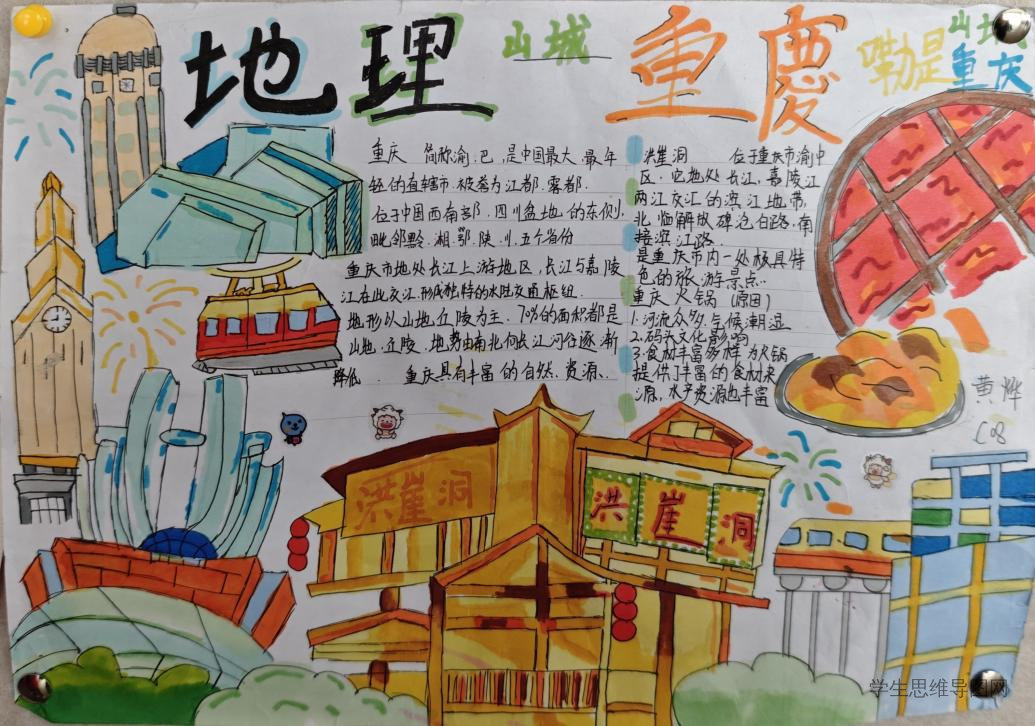 地理 山城 重慶
嘞是
山城
重庆
重庆 简称渝.巴,是中国最大.最年
轻的直辖市.被誉为江都.雾都.
位于中国西南部.四川盆地的东侧.
毗邻黔.湘.鄂.陕.川.五个省份
重庆市地处长江上游地区,长江与嘉陵
江在此交汇.形成独特的水陆交通枢纽.
地形以山地丘陵为主.70%的面积都是
山地.丘陵.地势由南北向长江河谷逐渐
降低. 重庆具有丰富的自然.资源.
洪崖洞 位于重庆市渝中
区.它地处长江.嘉陵江
两江交汇的滨江地带,
北临解放碑沧白路.南
接滨江路.
是重庆市内一处极具特
色的旅游景点..
重庆火锅(原因)
1.河流众多.气候潮湿
2.码头文化影响
3.食材丰富多样为火锅
提供了丰富的食材来
源.水产资源也丰富
黄烨
C08
洪崖洞
洪崖洞
学生思维导图网